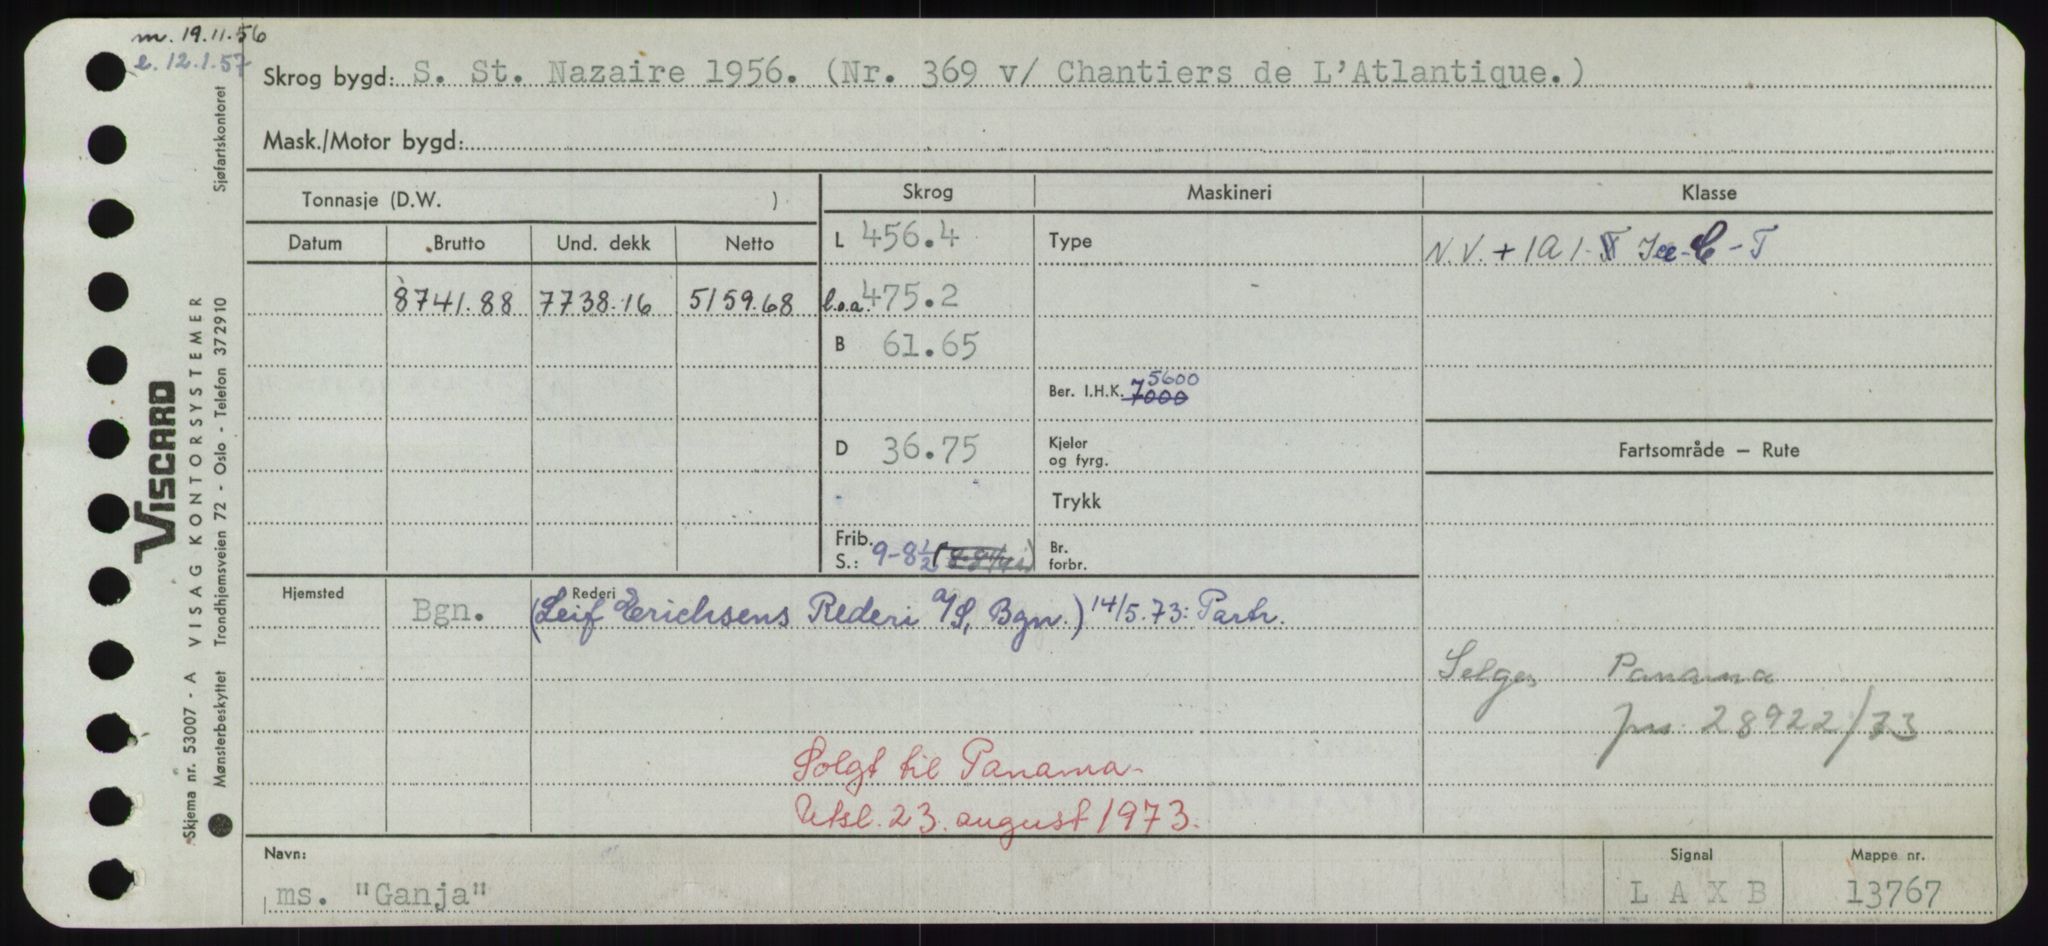 m. 19.11.56
e. 12.1.57
Skrog bygd: S. St. Nazaire 1956. (Nr. 369 v/ Chantiers de L'Atlantique.)
Mask./Motor bygd:
Tonnasje (D.W. )
Skrog
Maskineri
Klasse
Datum
Brutto
Und. dekk
Netto
L 456.4
Type
N.V. + 1A1- Ice-C - T
8741.88 7738.16 5159.68
l.o.a. 475.2
B 61.65
Ber. I.H.K. 7000 5600
D 36.75
Kjeler
og fyrg.
Fartsområde — Rute
Trykk
Frib.
S.: 9-8½
Br.
forbr.
Hjemsted
Rederi
Bgn. (Leif Erichsens Rederi a/S, Bgn.) 14/5.73: Partr.
Selges Panama
jnr. 28922/73
Solgt til Panama-
Utsl. 23. august 1973.
Navn:
ms. "Ganja"
Signal
L A X B
Mappe nr.
13767
VISCARD
Skjema nr. 53007 - A VISAG KONTORSYSTEMER
Mønsterbeskyttet Trondhjemsveien 72 - Oslo - Telefon 372910 Sjøfartskontoret